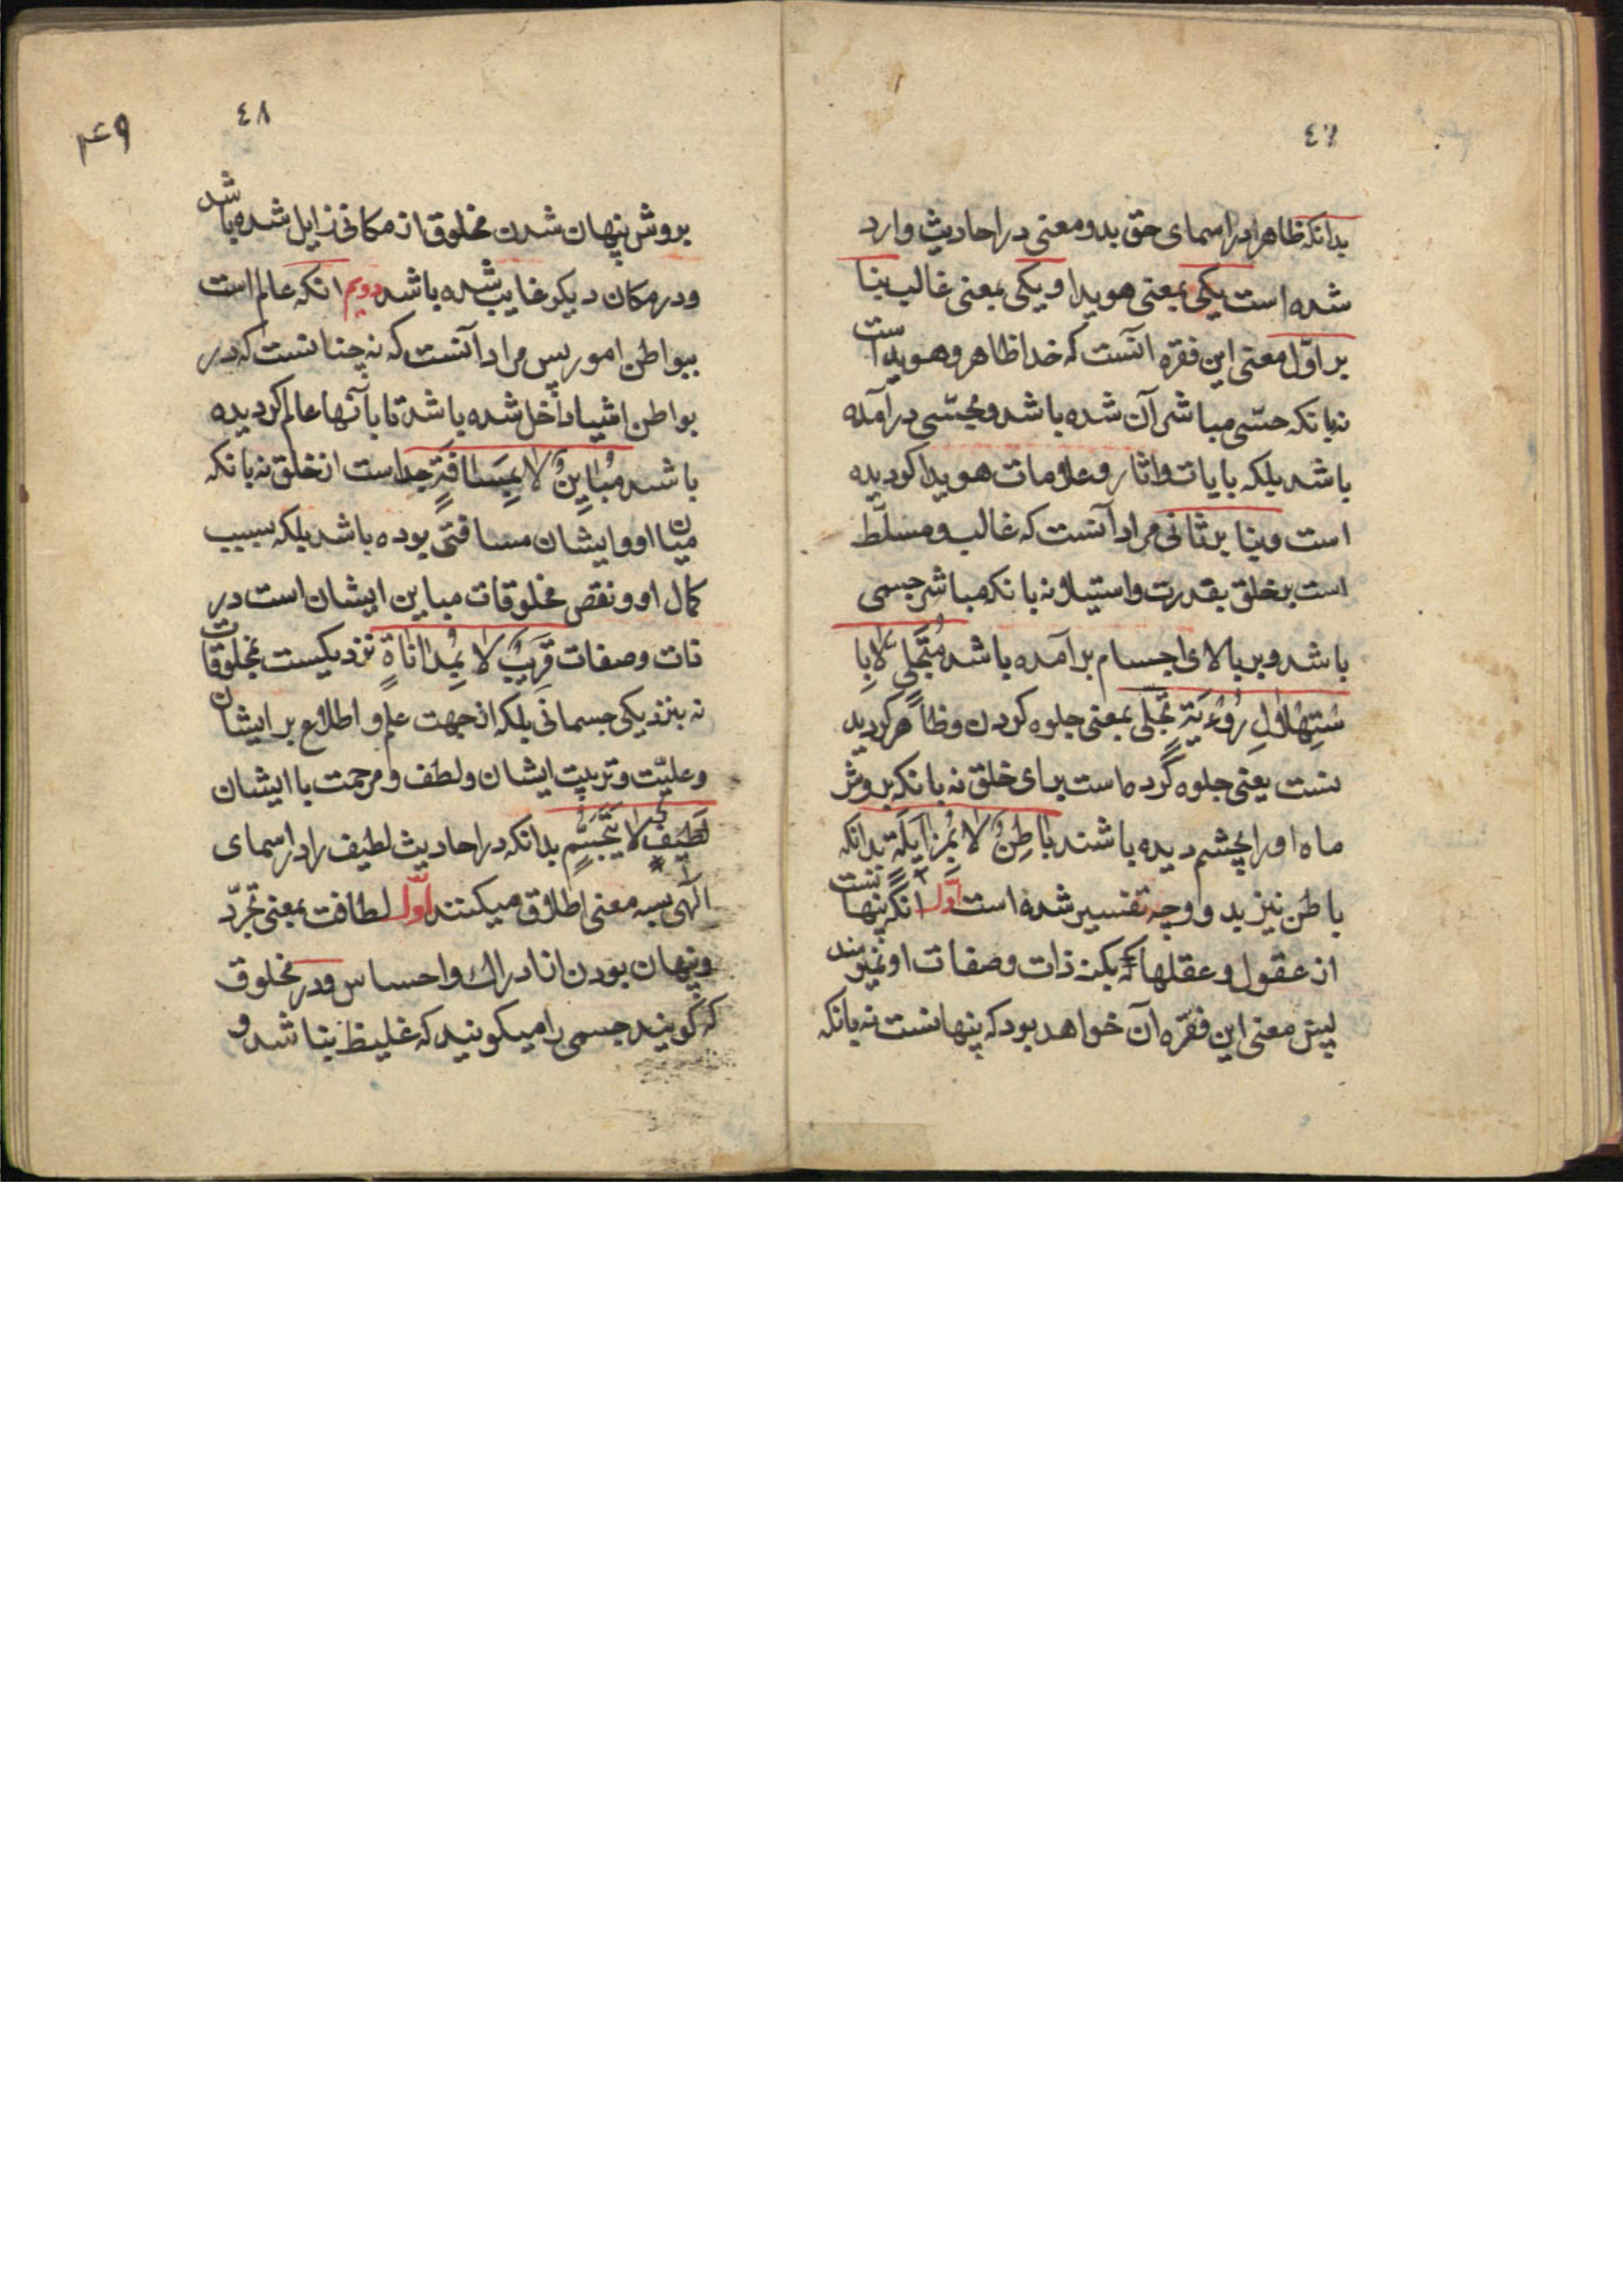 ٤٧
بدانکه ظاهرا در اسمای حق بدو معنی در احادیث وارد
شده است یکی بمعنی هویدا و یکی بمعنی غالب بنا
بر اوّل معنی این فقره آنست که خدا ظاهر و هویدا است
نه بانکه حسّی مباشر آن شده باشد و بحسّی درآمده
باشد بلکه بایات و اثار و علامات هویدا کردیده
است و بنا بر ثانی مراد آنست که غالب و مسلّط
است بر خلق بقدرت و استیلا نه بانکه مباشر جسمی
باشد و بر بالای اجسام برآمده باشد مُتَجَلٍّ لا بِا
سْتِهْلالِ رُؤْیَةٍ تجلّی بمعنی جلوه کردن و ظاهر کردید
نست یعنی جلوه گرد ماست برای خلق نه بانکه بروش
ماه او را بچشم دیده باشند باطِنٌ لا بِمُزایَلَةٍ بدانکه
باطن نیز بدو وجه تفسیر شده است اوّل انکه پنهانست
از عقول و عقلها که بکنه ذات و صفات او نمیرسند
پیش معنی این فقره آن خواهد بود که پنهانست نه بانکه
٤٨
۴۹
بروش پنهان شدن مخلوق از مکانی زایل شده باشد
و در مکان دیکر غایب شده باشد دویم انکه عالم است
ببواطن امور پس مراد آنست که نه چنانست که در
بواطن اشیا داخل شده باشد تا بآنها عالم کردیده
باشد مُبایِنٌ لا بِمَسافَةٍ جداست از خلق نه بانکه
میان او و ایشان مسافتی بوده باشد بلکه بسبب
کمال او و نقص مخلوقات مباین ایشان است در
ذات و صفات قَریبٌ لا بِمُداناةٍ نزدیکست بمخلوقات
نه بنزدیکی جسمانی بلکه از جهت علم و اطلاع بر ایشان
و علیّت و تربیت ایشان و لطف و مرحمت با ایشان
لَطیفٌ لا بِتَجَسُّمٍ بدانکه در احادیث لطیف را در اسمای
الهی بسه معنی اطلاق میکنند اوّل لطافت بمعنی تجرّد
و پنهان بودن از ادراک و احساس و در مخلوق
که کویند جسمی را میکویند که غلیظ نباشد و